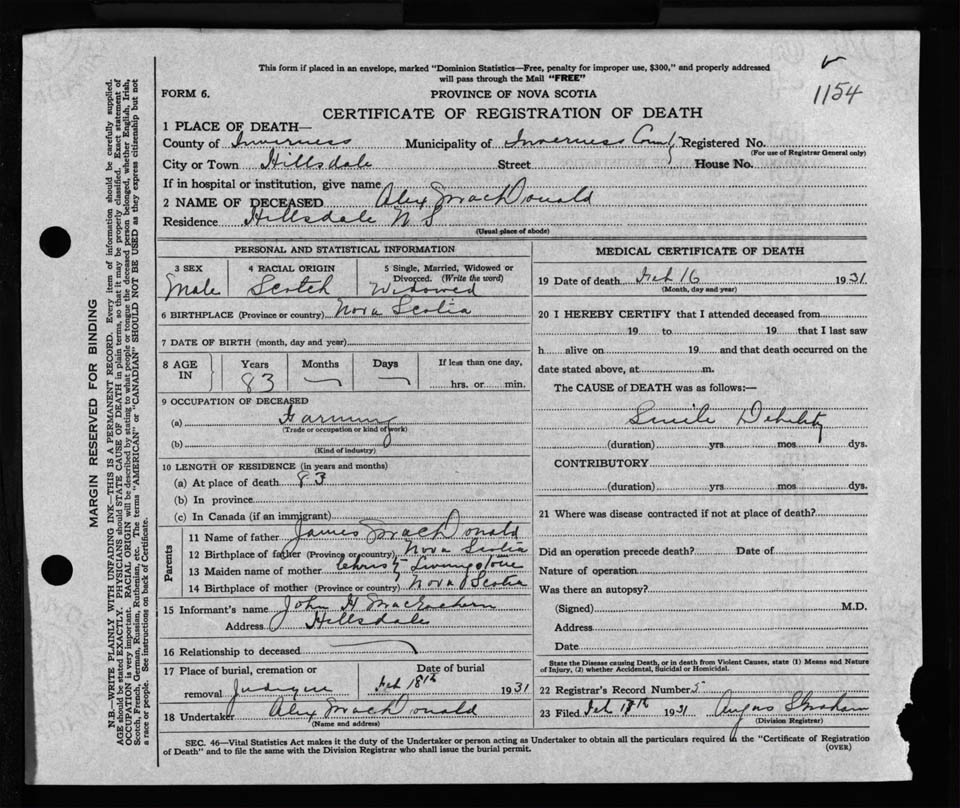 This form if placed in an envelope, marked "Dominion Statistics—Free, penalty for improper use, $300," and properly addressed
will pass through the Mail "FREE"
1154
FORM 6.
PROVINCE OF NOVA SCOTIA
CERTIFICATE OF REGISTRATION OF DEATH
1 PLACE OF DEATH—
County of Inverness Municipality of Inverness County Registered No.
(For use of Registrar General only)
City or Town Hillsdale Street House No.
If in hospital or institution, give name
2 NAME OF DECEASED Alex MacDonald
Residence Hillsdale N S
(Usual place of abode)
PERSONAL AND STATISTICAL INFORMATION
3 SEX
Male
4 RACIAL ORIGIN
Scotch
5 Single, Married, Widowed or
Divorced. (Write the word)
Widowed
6 BIRTHPLACE (Province or country) Nova Scotia
7 DATE OF BIRTH (month, day and year)
8 AGE
IN
Years
83
Months
Days
If less than one day,
hrs. or min.
9 OCCUPATION OF DECEASED
(a) Farming
(Trade or occupation or kind of work)
(b)
(Kind of industry)
10 LENGTH OF RESIDENCE (in years and months)
(a) At place of death 83
(b) In province
(c) In Canada (if an immigrant)
Parents
11 Name of father James MacDonald
12 Birthplace of father (Province or country) Nova Scotia
13 Maiden name of mother Christy Livingstone
14 Birthplace of mother (Province or country) Nova Scotia
15 Informant's name John H MacEachern
Address Hillsdale
16 Relationship to deceased
17 Place of burial, cremation or
removal Judique
Date of burial
Feb 18th 1931
18 Undertaker Alex MacDonald
(Name and address)
MEDICAL CERTIFICATE OF DEATH
19 Date of death Feb 16 1931
(Month, day and year)
20 I HEREBY CERTIFY that I attended deceased from
19 to 19 that I last saw
h alive on 19 and that death occurred on the
date stated above, at m.
The CAUSE of DEATH was as follows:—
Senile Debility
(duration) yrs. mos. dys.
CONTRIBUTORY
(duration) yrs. mos. dys.
21 Where was disease contracted if not at place of death?
Did an operation precede death? Date of
Nature of operation
Was there an autopsy?
(Signed) M.D.
Address
Date
State the Disease causing Death, or in death from Violent Causes, state (1) Means and Nature
of Injury, (2) whether Accidental, Suicidal or Homicidal.
22 Registrar's Record Number 5
23 Filed Feb 18th 1931 Angus
(Division Registrar)
SEC. 46—Vital Statistics Act makes it the duty of the Undertaker or person acting as Undertaker to obtain all the particulars required in the "Certificate of Registration
of Death" and to file the same with the Division Registrar who shall issue the burial permit.
(OVER)
MARGIN RESERVED FOR BINDING
N.B.—WRITE PLAINLY WITH UNFADING INK—THIS IS A PERMANENT RECORD. Every item of information should be carefully supplied.
AGE should be stated EXACTLY. PHYSICIANS should STATE CAUSE OF DEATH in plain terms, so that it may be properly classified. Exact statement of
OCCUPATION is very important. RACIAL ORIGIN will be described by stating to what people or tongue the deceased person belonged, whether English, Irish,
Scotch, French, German, Russian, Ruthenian, etc. The terms "AMERICAN" or "CANADIAN" SHOULD NOT BE USED as they express citizenship but not
a race or people. See instructions on back of Certificate.